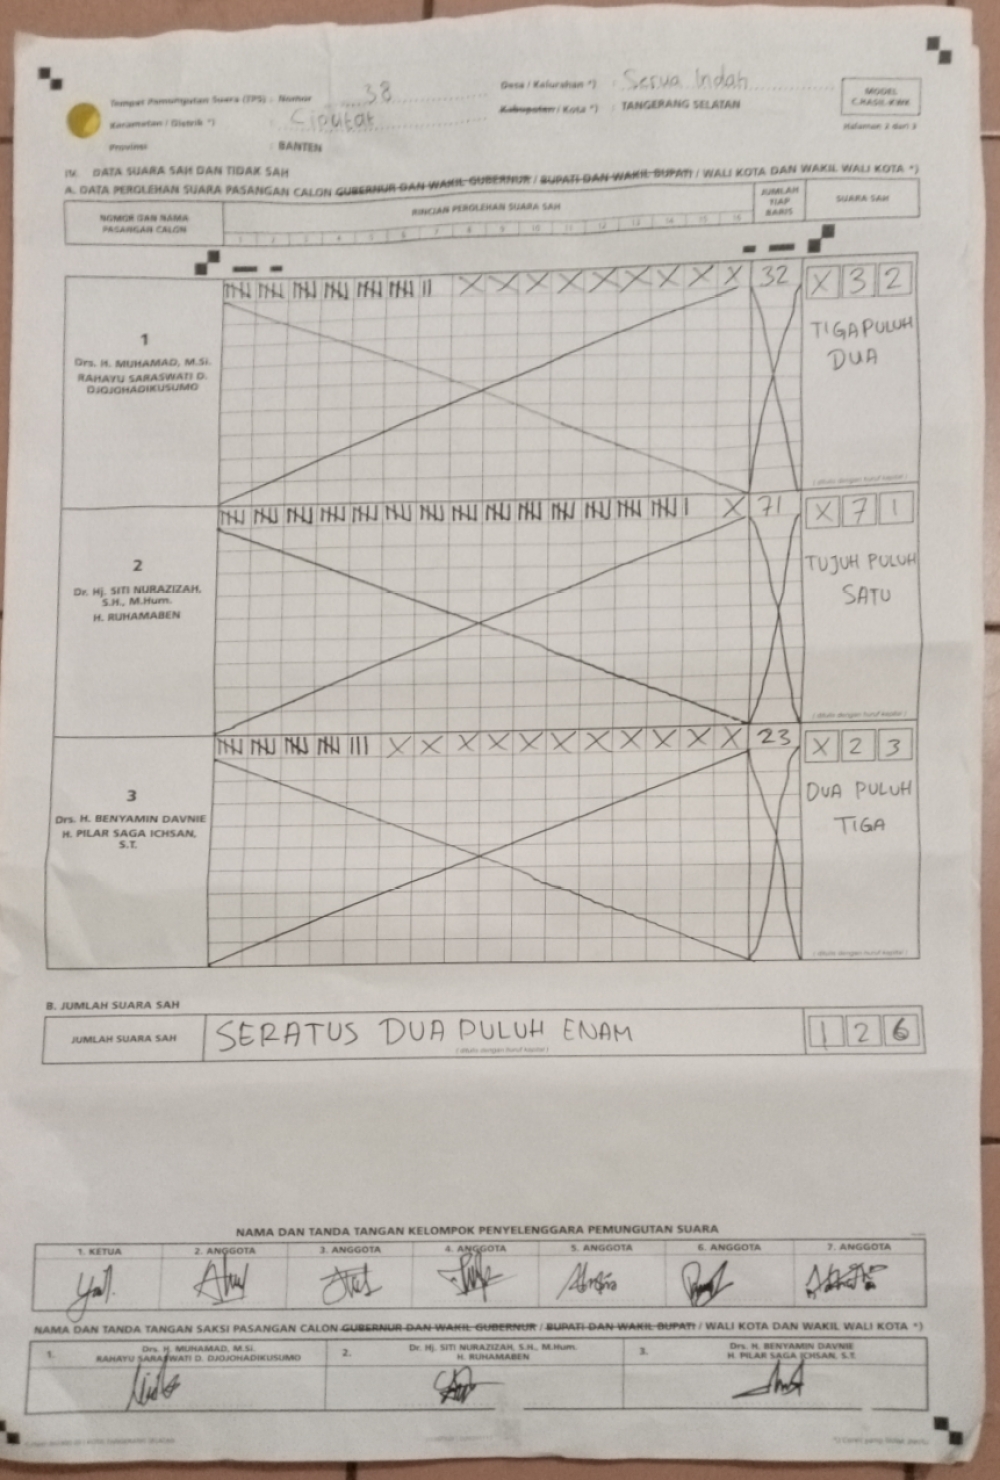 Tempat Pemungutan Suara (TPS) : Nomor 38
Desa / Kelurahan *) : Serua Indah
Kecamatan / Distrik *) : Ciputat
Kabupaten / Kota *) : TANGERANG SELATAN
Provinsi : BANTEN
MODEL
C.HASIL-KWK
Halaman 2 dari 3
IV. DATA SUARA SAH DAN TIDAK SAH
A. DATA PEROLEHAN SUARA PASANGAN CALON GUBERNUR DAN WAKIL GUBERNUR / BUPATI DAN WAKIL BUPATI / WALI KOTA DAN WAKIL WALI KOTA *)
NOMOR DAN NAMA
PASANGAN CALON
RINCIAN PEROLEHAN SUARA SAH
1 2 3 4 5 6 7 8 9 10 11 12 13 14 15 16
JUMLAH
TIAP
BARIS
SUARA SAH
1
Drs. H. MUHAMAD, M.Si.
RAHAYU SARASWATI D.
DJOJOHADIKUSUMO
X X X X X X X X X
32
X 3 2
TIGA PULUH
DUA
(ditulis dengan huruf kapital)
2
Dr. Hj. SITI NURAZIZAH,
S.H., M.Hum.
H. RUHAMABEN
X
71
X 7 1
TUJUH PULUH
SATU
(ditulis dengan huruf kapital)
3
Drs. H. BENYAMIN DAVNIE
H. PILAR SAGA ICHSAN,
S.T.
X X X X X X X X X X X
23
X 2 3
DUA PULUH
TIGA
(ditulis dengan huruf kapital)
B. JUMLAH SUARA SAH
JUMLAH SUARA SAH
SERATUS DUA PULUH ENAM
(ditulis dengan huruf kapital)
1 2 6
NAMA DAN TANDA TANGAN KELOMPOK PENYELENGGARA PEMUNGUTAN SUARA
1. KETUA
2. ANGGOTA
3. ANGGOTA
4. ANGGOTA
5. ANGGOTA
6. ANGGOTA
7. ANGGOTA
NAMA DAN TANDA TANGAN SAKSI PASANGAN CALON GUBERNUR DAN WAKIL GUBERNUR / BUPATI DAN WAKIL BUPATI / WALI KOTA DAN WAKIL WALI KOTA *)
1. Drs. H. MUHAMAD, M.Si.
RAHAYU SARASWATI D. DJOJOHADIKUSUMO
2. Dr. Hj. SITI NURAZIZAH, S.H., M.Hum.
H. RUHAMABEN
3. Drs. H. BENYAMIN DAVNIE
H. PILAR SAGA ICHSAN, S.T.
*) Coret yang tidak perlu